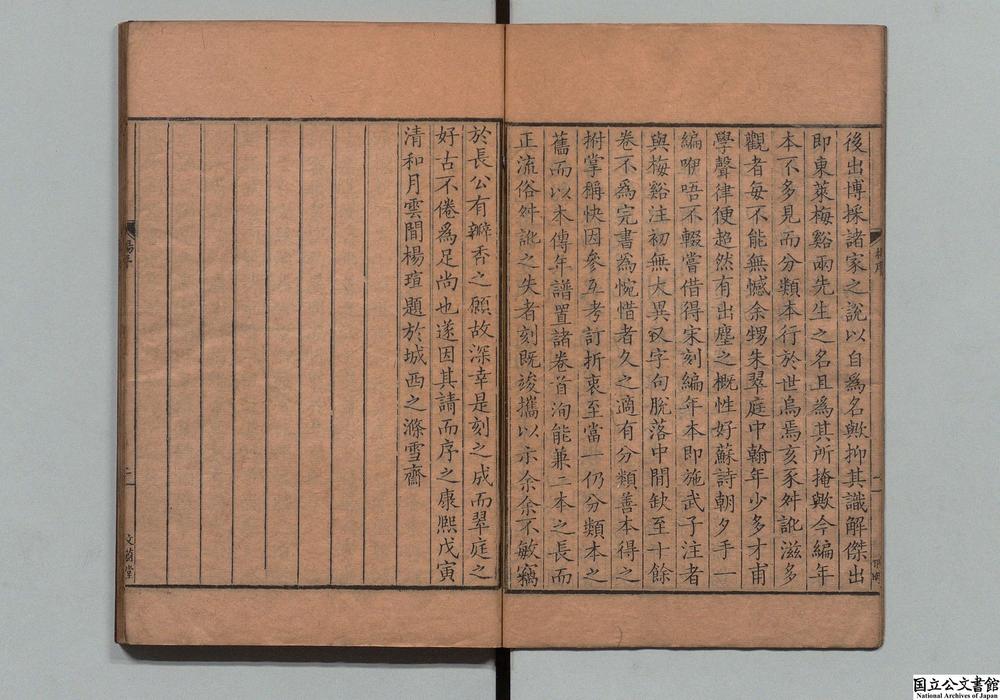 後出博採諸家之說以自爲名歟抑其識解傑出
即東萊梅谿兩先生之名且爲其所掩歟今編年
本不多見而分類本行於世烏焉亥豕舛訛滋多
觀者每不能無憾余甥朱翠庭中翰年少多才甫
學聲律便超然有出塵之概性好蘇詩朝夕手一
編咿唔不輟嘗借得宋刻編年本即施武子注者
與梅谿注初無大異及字句脫落中間缺至十餘
卷不爲完書爲惋惜者久之適有分類善本得之
拊掌稱快因參互考訂折衷至當一仍分類本之
舊而以本傳年譜置諸卷首洵能兼二本之長而
正流俗舛訛之失者刻既竣攜以示余余不敏竊
於長公有瓣香之願故深幸是刻之成而翠庭之
好古不倦爲足尚也遂因其請而序之康熙戊寅
清和月雲間楊瑄題於城西之滌雪齋
楊序
二
文蔚堂
国立公文書館
National Archives of Japan